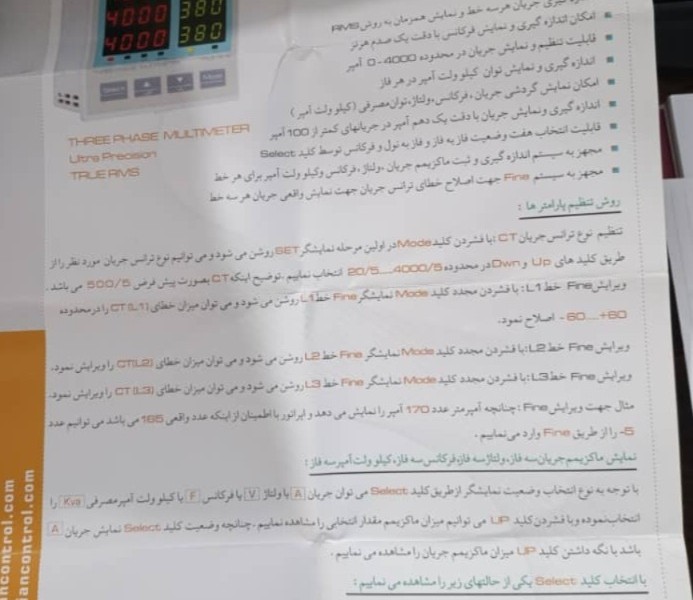 4000 380
4000 380
اندازه گیری جریان هر سه خط و نمایش همزمان به روش RMS
امکان اندازه گیری و نمایش فرکانس با دقت یک صدم هرتز
قابلیت تنظیم و نمایش جریان در محدوده 4000 - 0 آمپر
اندازه گیری و نمایش توان کیلو ولت آمپر در هر فاز
امکان نمایش گردشی جریان ، فرکانس ، ولتاژ ، توان مصرفی ( کیلو ولت آمپر )
اندازه گیری ونمایش جریان با دقت یک دهم آمپر در جریانهای کمتر از 100 آمپر
قابلیت انتخاب هفت وضعیت فاز به فاز و فاز به نول و فرکانس توسط کلید Select
مجهز به سیستم اندازه گیری و ثبت ماکزیمم جریان ، ولتاژ ، فرکانس وکیلو ولت آمپر برای هر خط
مجهز به سیستم Fine جهت اصلاح خطای ترانس جریان جهت نمایش واقعی جریان هر سه خط
THREE PHASE MULTIMETER
Ultra Precision
TRUE RMS
روش تنظیم پارامتر ها :
تنظیم نوع ترانس جریان CT : با فشردن کلید Mode در اولین مرحله نمایشگر SET روشن می شود و می توانیم نوع ترانس جریان مورد نظر را از
طریق کلید های Up و Dwn در محدوده 20/5....4000/5 انتخاب نماییم . توضیح اینکه CT بصورت پیش فرض 500/5 می باشد .
ویرایش Fine خط L1 : با فشردن مجدد کلید Mode نمایشگر Fine خط L1 روشن می شود و می توان میزان خطای CT (L1) را در محدوده
-60....+60 اصلاح نمود.
ویرایش Fine خط L2 : با فشردن مجدد کلید Mode نمایشگر Fine خط L2 روشن می شود و می توان میزان خطای CT(L2) را ویرایش نمود.
ویرایش Fine خط L3 : با فشردن مجدد کلید Mode نمایشگر Fine خط L3 روشن می شود و می توان میزان خطای CT (L3) را ویرایش نمود.
مثال جهت ویرایش Fine : چنانچه آمپرمتر عدد 170 آمپر را نمایش می دهد و اپراتور با اطمینان از اینکه عدد واقعی 165 می باشد می توانیم عدد
-5 را از طریق Fine وارد می نماییم .
نمایش ماکزیمم جریان سه فاز، ولتاژ سه فاز، فرکانس سه فاز، کیلو ولت آمپر سه فاز :
با توجه به نوع انتخاب وضعیت نمایشگر از طریق کلید Select می توان جریان A یا ولتاژ V یا فرکانس F یا کیلو ولت آمپر مصرفی Kva را
انتخاب نموده و با فشردن کلید UP می توانیم میزان ماکزیمم مقدار انتخابی را مشاهده نماییم . چنانچه وضعیت کلید Select نمایش جریان A
باشد با نگه داشتن کلید UP میزان ماکزیمم جریان را مشاهده می نماییم .
با انتخاب کلید Select یکی از حالتهای زیر را مشاهده می نماییم :
iancontrol.com
iancontrol.com